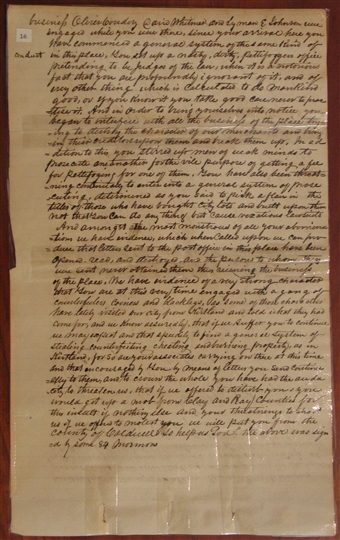 26
business Oliver Cowdery David Whitmer and Lyman E Johnson were
engaged while you were there. Since your arrival here you
have commenced a general system of the same kind of
conduct
in this place. You set up a nasty, dirty, pettifogger's office
pretending to be judges of the law, when it is a notorious
fact that you are profoundly ignorant of it, and of
every other thing which is calculated to do mankind
good, or if you know it you take good care never to prac
tice it. And in order to bring yourselves into notice you
began to interfere with all the business of the place trying
to destroy the character of our merchants and bring
their creditors upon them and break them up. In ad
dition to this you stirred up men of weak minds to
prosecute one another for the vile purpose of getting a fee
for pettifogging for one of them. You have also been threat
ning continually to enter into a general system of prose
cuting, determined as you said to pick a flaw in the
titles of those who have bought city lots and built upon them
not that you can do any thing but cause vexatious lawsuits
And amongst the most monstrous of all your abomina
tions we have evidence, which when called upon we can pro
duce that letters sent to the post office in this place have been
opened, read, and destroyed, and the persons to whom they
were sent never obtained them thus ruining the business
of the place. We have evidence of a very strong character
that you are at this very time engaged with a gang of
counterfeiters coiners and blacklegs, as some of those characters
have lately visited our city from Kirtland and told what they had
come for, and we know assuredly, that if we suffer you to continue
we may expect and that speedily to find a general system of
stealing, counterfeiting, cheating, and burning property as in
Kirtland, for so are your associates carrying on there at this time
and that encouraged by you by means of letters you send continu
ally to them; and to crown the whole you have had the audac
ity to threaten us, that if we offered to disturb you you
would get up a mob from Clay and Ray Counties for
this insult if nothing else and your threatening to shoot
us if we offered to molest you we will put you from the
County of Caldwell So help us God. The above was sign
ed by some 84 Mormons